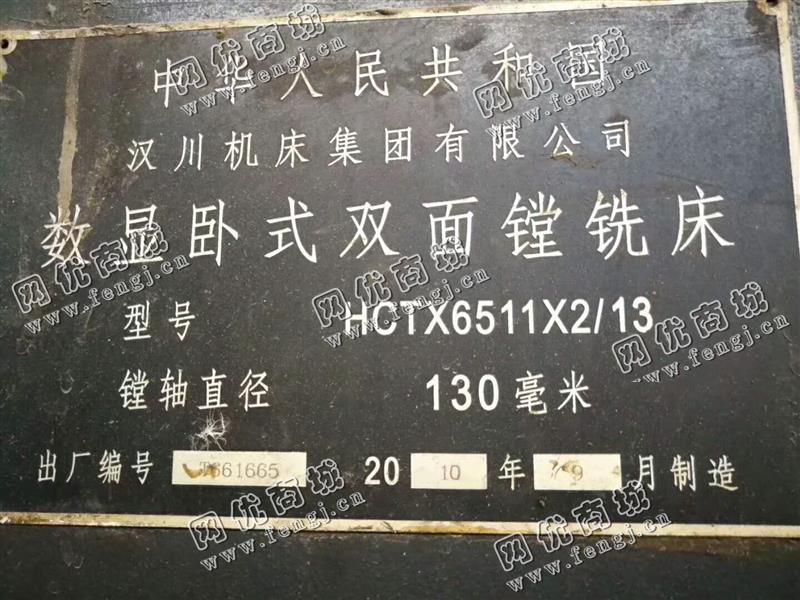 中华人民共和国
汉川机床集团有限公司
数显卧式双面镗铣床
型号 HCTX6511X2/13
镗轴直径 130毫米
出厂编号 T661665 2010年 9月制造
网优商城
www.fengj.cn
网优商城
www.fengj.cn
网优商城
www.fengj.cn
网优商城
www.fengj.cn
网优商城
www.fengj.cn
网优商城
www.fengj.cn
网优商城
www.fengj.cn
网优商城
www.fengj.cn